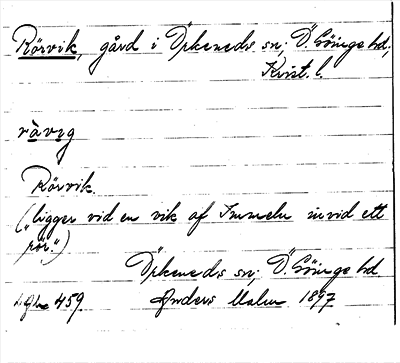 Rörvik, gård i Örkeneds sn; Ö. Göinge hd,
Krist. l.
rà̀vig
Rörvik
("ligger vid en vik af Immeln invid ett
rör.")
Örkeneds sn; Ö. Göinge hd.
459 Anders Malm 1897